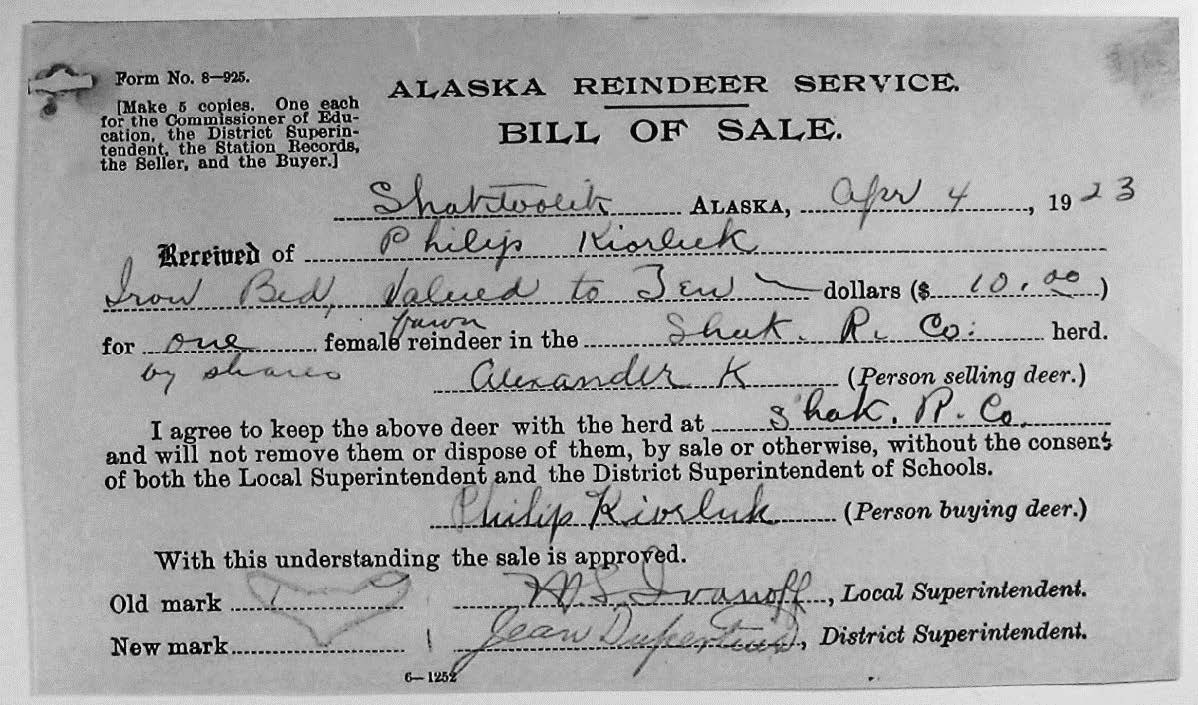 Form No. 8—925.
[Make 5 copies. One each
for the Commissioner of Edu-
cation, the District Superin-
tendent, the Station Records,
the Seller, and the Buyer.]
ALASKA REINDEER SERVICE.
BILL OF SALE.
Shaktoolik ALASKA, Apr 4, 1923
Received of Philip Kiorluk
Iron Bed, Valued to Ten dollars ($ 10.00)
fawn
for one female reindeer in the Shak. R. Co. herd.
by shares Alexander K (Person selling deer.)
I agree to keep the above deer with the herd at Shak. R. Co.
and will not remove them or dispose of them, by sale or otherwise, without the consent
of both the Local Superintendent and the District Superintendent of Schools.
Philip Kiorluk (Person buying deer.)
With this understanding the sale is approved.
Old mark M S Ivanoff, Local Superintendent.
New mark Jean Dupertuis, District Superintendent.
6—1252